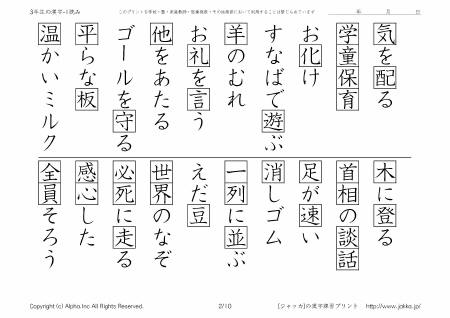 3年生の漢字-1読み
このプリントを学校・塾・家庭教師・医療機関・その他施設において利用することは禁じられています
年 月 日
気を配る
学童保育
お化け
すなばで遊ぶ
羊のむれ
お礼を言う
他をあたる
ゴールを守る
平らな板
温かいミルク
木に登る
首相の談話
足が速い
消しゴム
一列に並ぶ
えだ豆
世界のなぞ
必死に走る
感心した
全員そろう
Copyright (c) Alpha.Inc All Rights Reserved.
2/10
[ジャッカ]の漢字練習プリント http://www.jakka.jp/